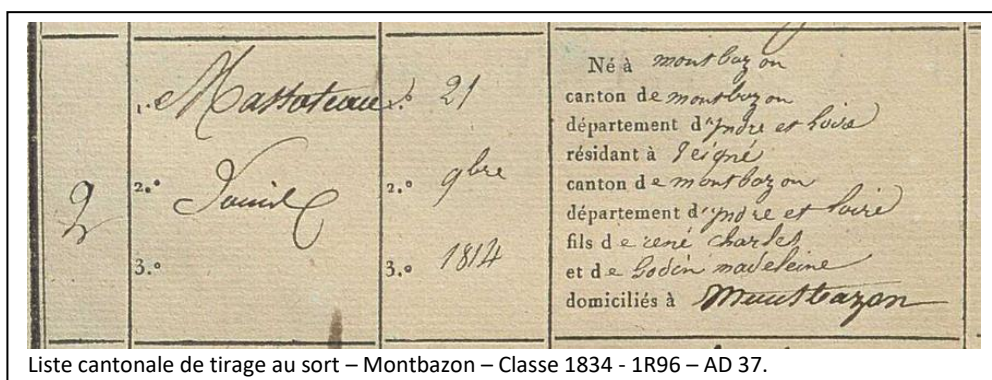 2
1.° Massoteau
2.°
3.°
1.° 21
2.° 9bre
3.° 1814
Né à montbazon
canton de montbazon
département d'yndre et Loire
résidant à Veigné
canton de montbazon
département d'yndre et Loire
fils de rené charles
et de Godin madeleine
domiciliés à Montbazon
Liste cantonale de tirage au sort – Montbazon – Classe 1834 - 1R96 – AD 37.